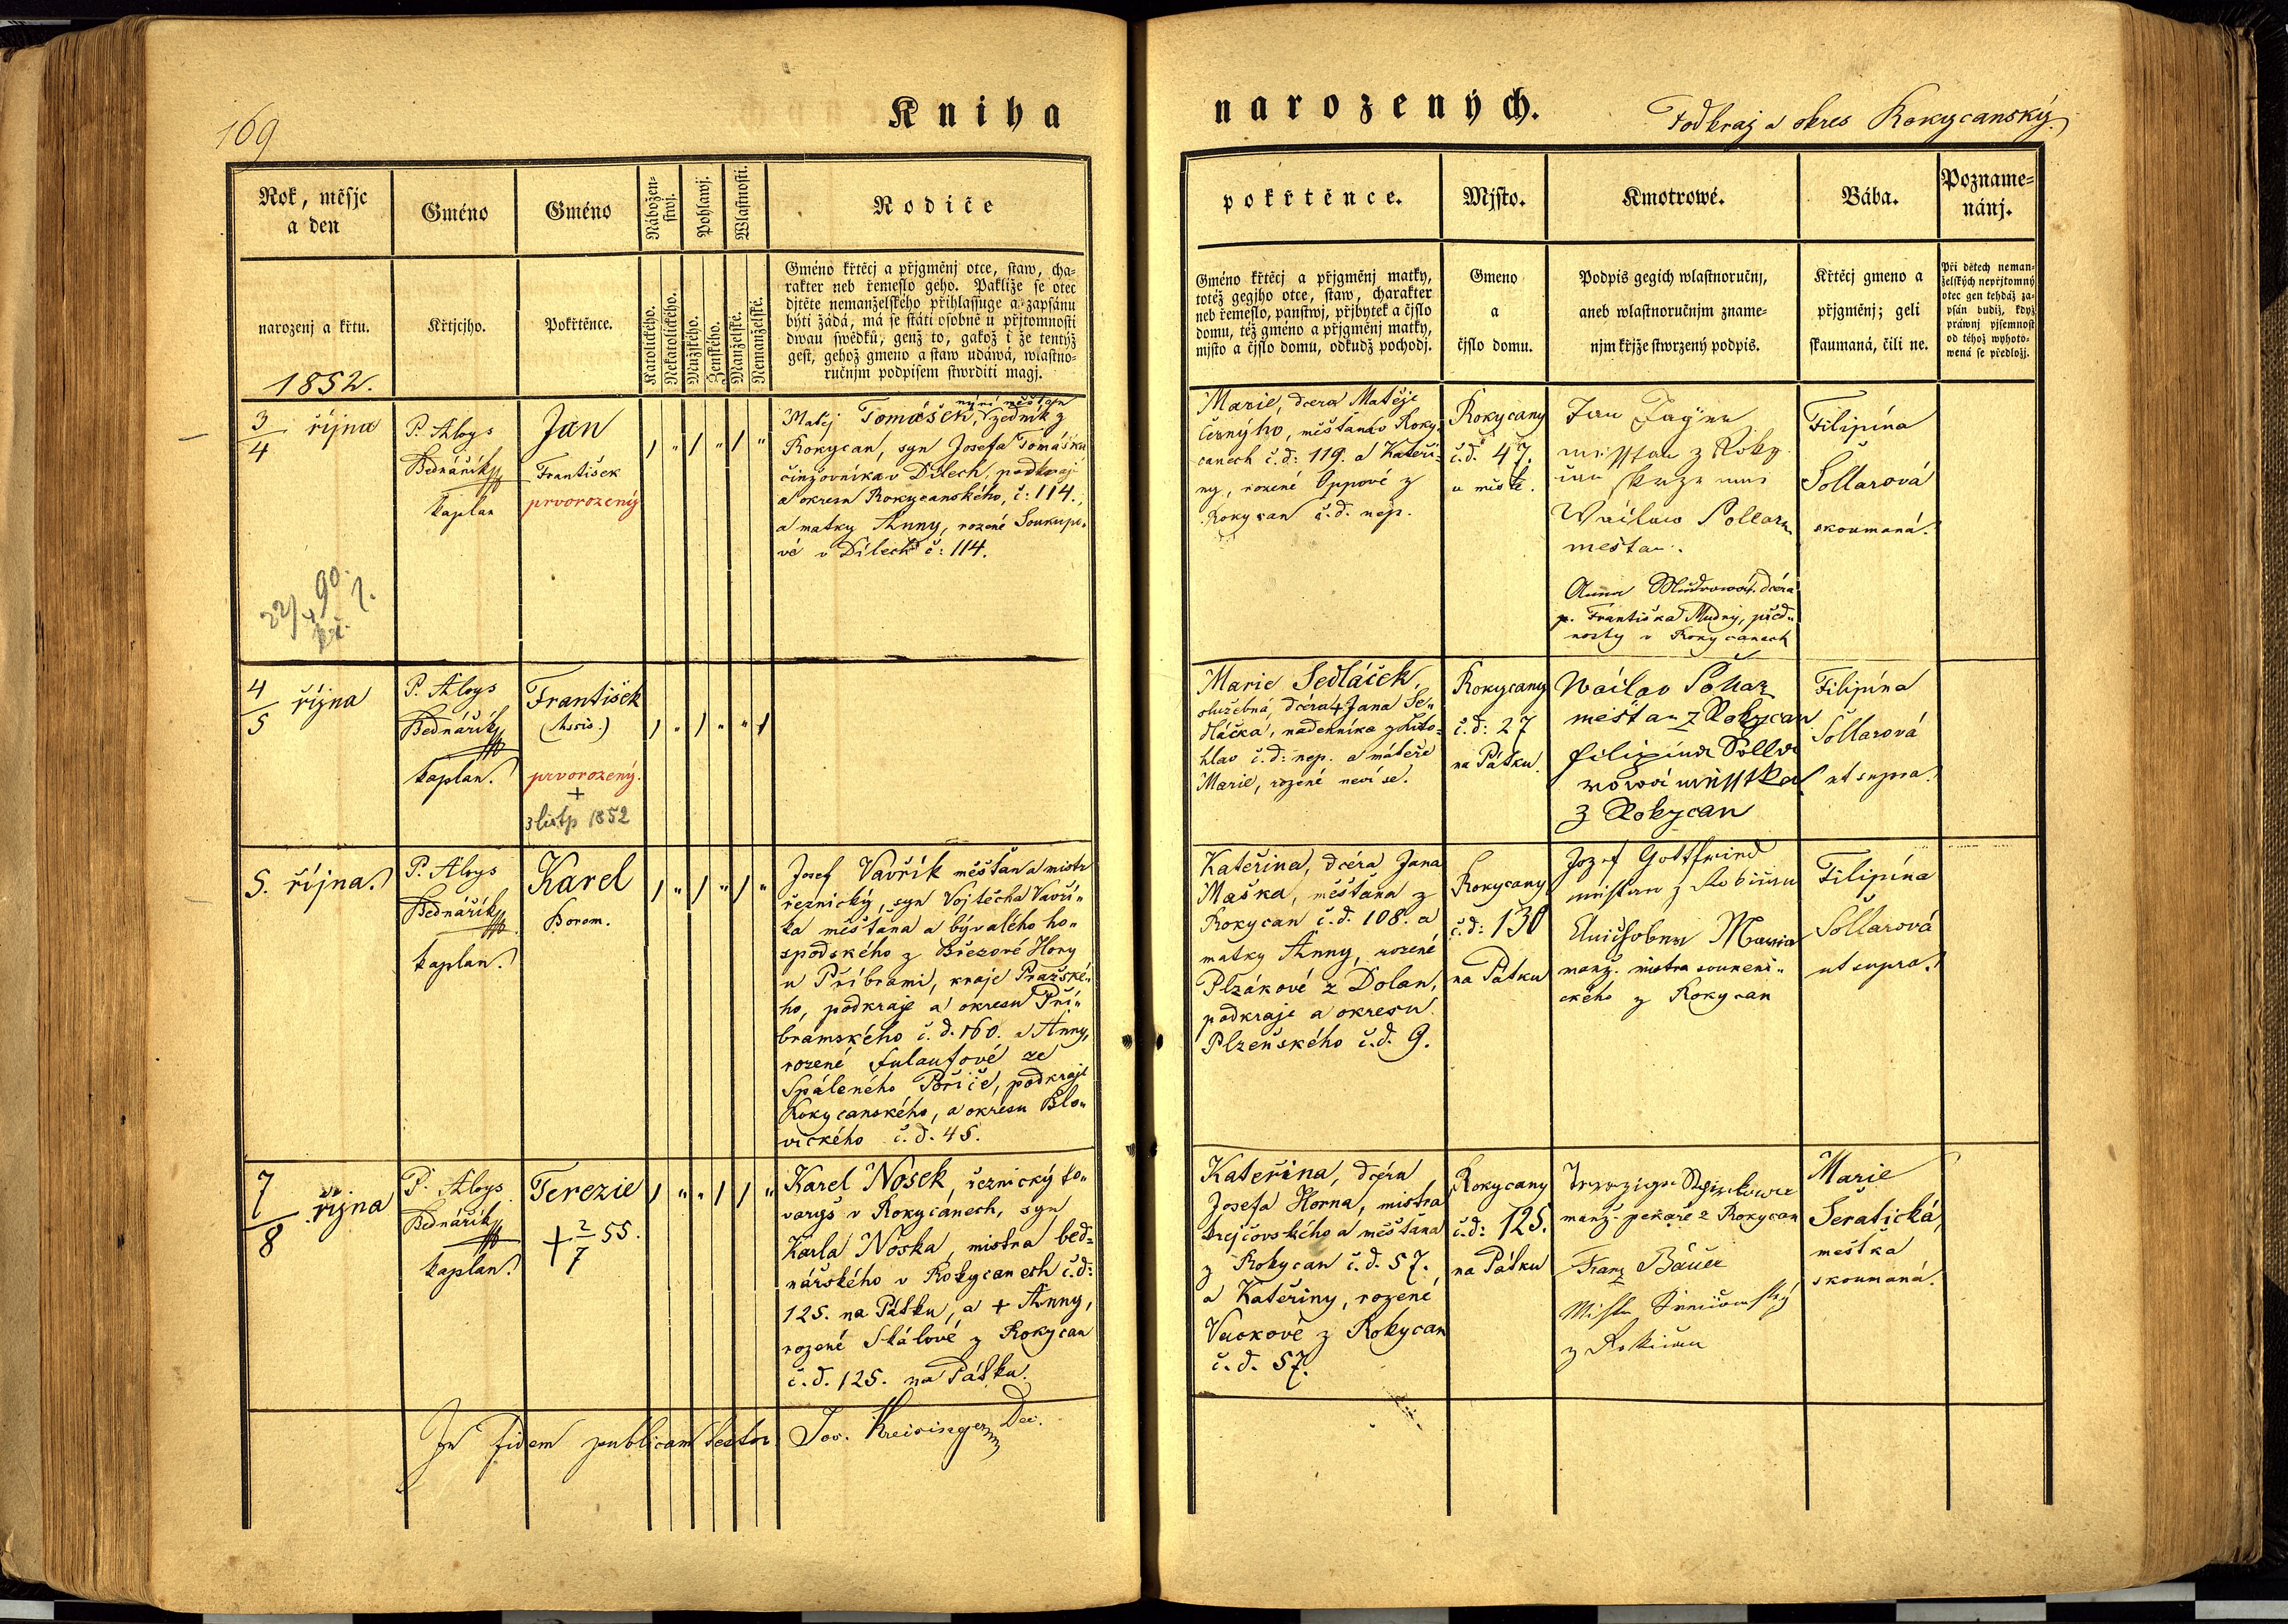 169
Kniha
narozených.
Podkraj a okres Rokycanský.
Rok, měsjc
a den
narozenj a křtu.
1852.
Gméno
Křtjcjho.
Gméno
Pokřtěnce.
Nábožen-
stwj.
Katolického.
Nekatolického.
Pohlawj.
Mužského.
Ženského.
Wlastnosti.
Manželské.
Nemanželské.
Rodiče
Gméno křtěcj a přjgměnj otce, staw, cha-
rakter neb řemeslo geho. Pakliže se otec
djtěte nemanželského přihlassuge a zapsánu
býti žádá, má se státi osobně u přjtomnosti
dwau swědků, genž to, gakož i že tentýž
gest, gehož gmeno a staw udáwá, wlastno-
ručnjm podpisem stwrditi magj.
pokřtěnce.
Gméno křtěcj a přjgměnj matky,
totéž gegjho otce, staw, charakter
neb řemeslo, panstwj, přjbytek a čjslo
domu, též gméno a přjgměnj matky,
mjsto a čjslo domu, odkudž pochodj.
Mjsto.
Gmeno
a
čjslo domu.
Kmotrowé.
Podpis gegich wlastnoručnj,
aneb wlastnoručnjm zname-
njm křjže stwrzený podpis.
Bába.
Křtěcj gmeno a
přjgměnj; geli
skaumaná, čili ne.
Pozname-
nánj.
Při dětech neman-
želských nepřjtomný
otec gen tehdáž za-
psán budiž, když
práwnj pjsemnost
od téhož wyhoto-
wená se předložj.
3/4 října
22/4 90.
P. Aloys
Bednářík
kaplan
Jan
František
prvorozený
nyní měšťan
Matěj Tomášek, zedník z
Rokycan, syn Josefa Tomáška
činžovníka v Dílech, podkraj
a okresu Rokycanského, č: 114.,
a matky Anny, rozené Soukupo-
vé v Dílech č: 114.
Marie, dcera Matěje
Černýho, měšťana v Roky-
canech č.d: 119. a Kateři-
ny, rozené Oppové z
Rokycan č.d. nep.
Rokycany
č.d. 47.
u městě.
Jan
z Roky
Wáclaw
mešťan.
Anna Mudrowá, dcéra
p. Františka Mudry, před-
nosty v Rokycanech
Filipína
Šollarová
skoumaná.
4/5 října
P. Aloys
Bednářík
kaplan.
František
(Assis.)
prvorozený.
+
3 listp 1852
Marie Sedláček,
služebná, dcéra + Jana Se-
dláčka, nádenníka z
hlav č.d: nep. a mateře
Marie, rozené neví se.
Rokycany
č.d: 27
na Pátku.
Wáclav
mešťan z Rokycan
Filipina Solla
rowá
z Rokycan
Filipína
Šollarová
ut supra.
5. října.
P. Aloys
Bednářík
kaplan.
Karel
Borom.
Josef Vavřík měšťan a mistr
řeznický, syn Vojtěcha Vavří-
ka měšťana a bývalého ho-
spodského z Březové Hory
u Příbrami, kraje Pražské-
ho, podkraje a okresu Pří-
bramského č.d. 160. a Anny,
rozené Fulaufové ze
Spáleného Poříčé, podkraje
Rokycanského, a okresu Blo-
vického č.d. 45.
Kateřina, dcéra Jana
Maška, měšťana z
Rokycan č.d. 108. a
matky Anny, rozené
Plzákové z Dolan,
podkraje a okresu
Plzeňského č.d. 9.
Rokycany
č.d: 130
na Pátku
Jozef Gottfried
Maria
manž. mistra soukeni-
ckého z Rokycan
Filipína
Šollarová
ut supra.
7/8 října
P. Aloys
Bednářík
kaplan.
Terezie
+ 2/7 55.
Karel Nosek, řeznický to-
varyš v Rokycanech, syn
Karla Noska, mistra bed-
nářského v Rokycanech č.d:
125. na Pátku, a + Anny,
rozené Skálové z Rokycan
č.d. 125. na Pátku.
Kateřina, dcéra
Josefa Horna, mistra
krejčovského a měšťana
z Rokycan č.d. 57.
a Kateřiny, rozené
Vackové z Rokycan
č.d. 57.
Rokycany
č.d: 125.
na Pátku
manž. pekaře z Rokycan
Franz Bauer
Marie
Šeratická,
meštka
skoumaná.
In fidem publicam testor Jos. Kreisinger Dec.